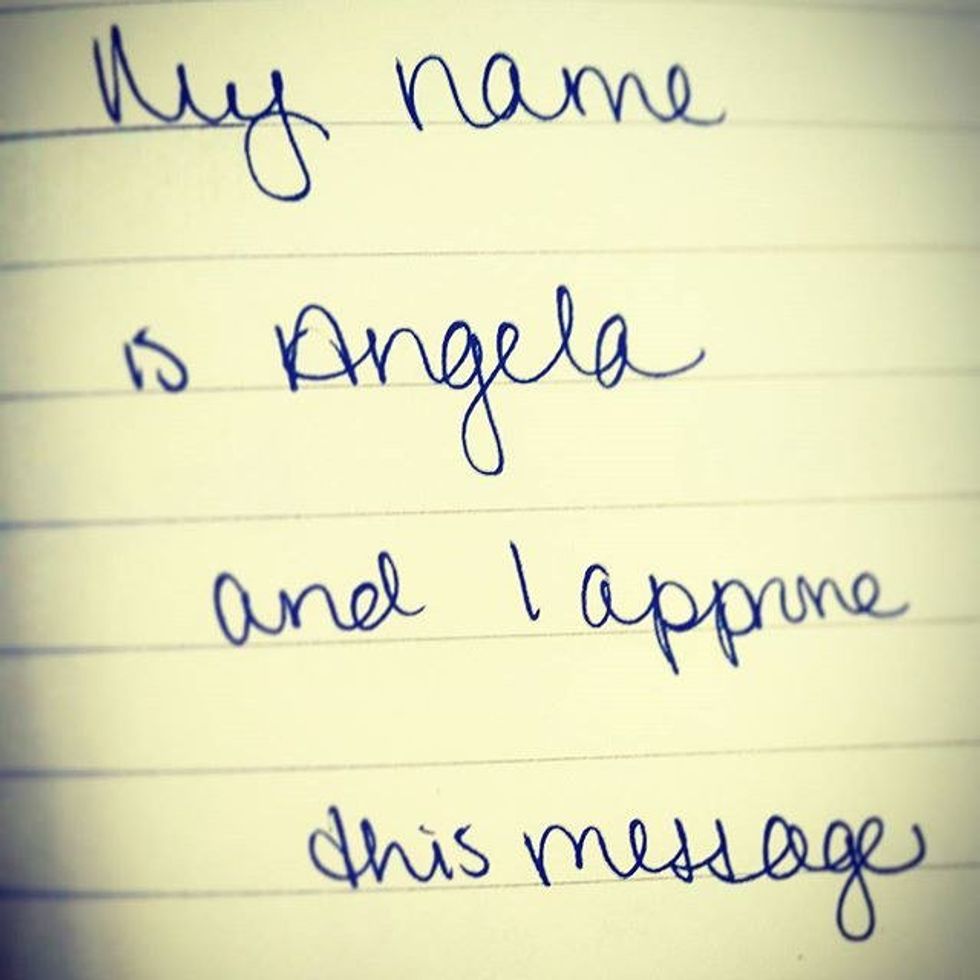 My name
is Angela
and I approve
this message